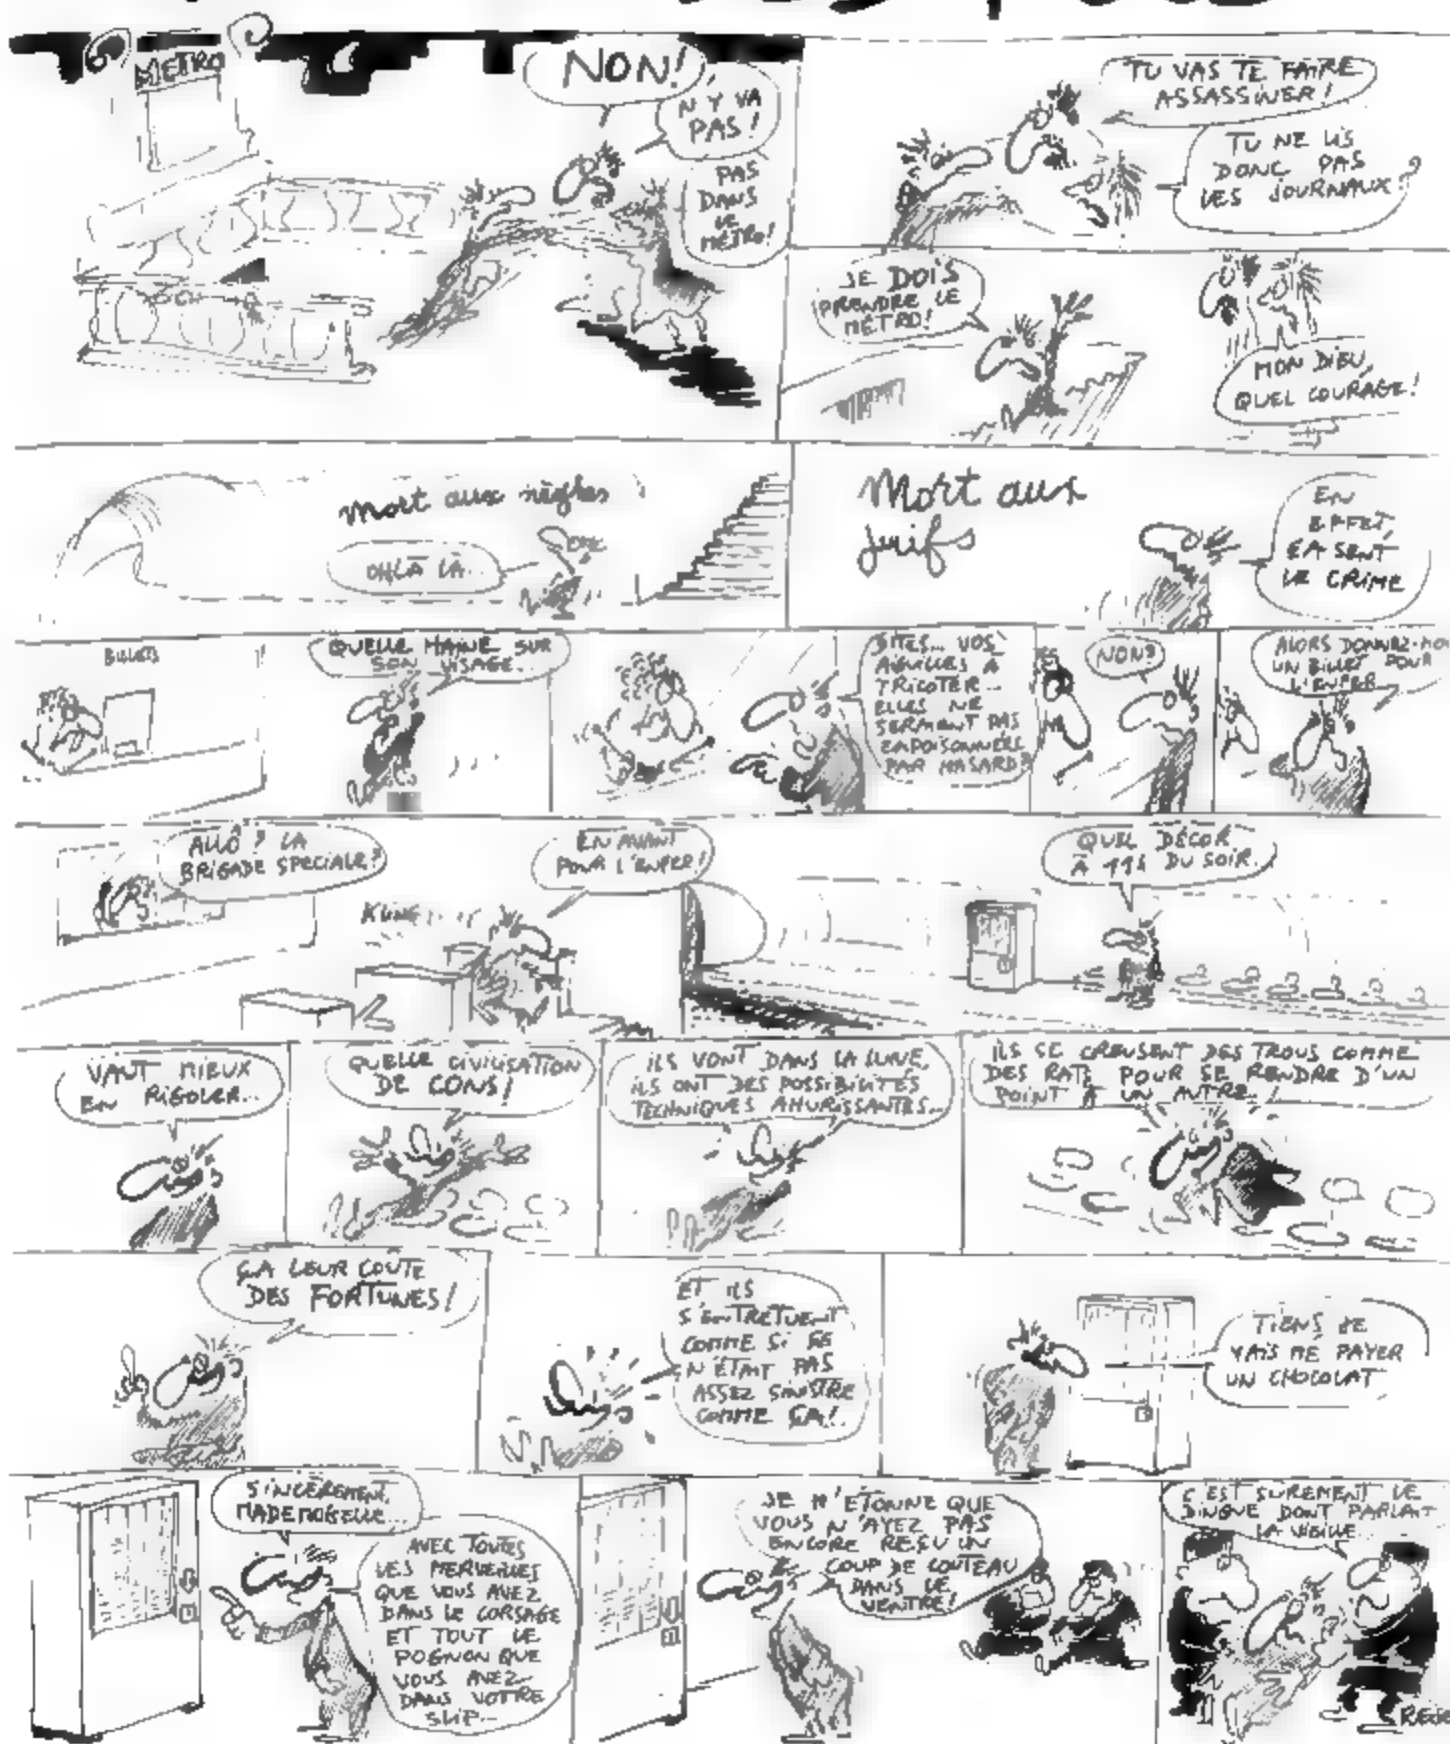 METRO
NON!
N'Y VA
PAS!
PAS
DANS
LE
METRO!
TU VAS TE FAIRE
ASSASSINER!
TU NE LIS
DONC PAS
LES JOURNAUX?
JE DOIS
PRENDRE LE
METRO!
MON DIEU,
QUEL COURAGE!
mort aux nègres
OHLÀ LÀ...
Mort aux
juifs
EN
EFFET,
ÇA SENT
LE CRIME
BILLETS
QUELLE HAINE SUR
SON VISAGE...
DITES... VOS
AIGUILLES A
TRICOTER...
ELLES NE
SERAIENT PAS
EMPOISONNÉES
PAR HASARD?
NON?
ALORS DONNEZ-MOI
UN BILLET POUR
L'ENFER...
ALLÔ? LA
BRIGADE SPECIALE?
EN AVANT
POUR L'ENFER!
QUEL DÉCOR
À 11h DU SOIR...
VAUT MIEUX
EN RIGOLER...
QUELLE CIVILISATION
DE CONS!
ILS VONT DANS LA LUNE,
ILS ONT DES POSSIBILITÉS
TECHNIQUES AHURISSANTES...
ILS SE CREUSENT DES TROUS COMME
DES RATS POUR SE RENDRE D'UN
POINT À UN AUTRE!
ÇA LEUR COUTE
DES FORTUNES!
ET ILS
S'ENTRETUENT
COMME SI CE
N'ÉTAIT PAS
ASSEZ SINISTRE
COMME ÇA!
TIENS JE
VAIS ME PAYER
UN CHOCOLAT
SINCÈREMENT,
MADEMOISELLE...
AVEC TOUTES
LES MERVEILLES
QUE VOUS AVEZ
DANS LE CORSAGE
ET TOUT LE
POGNON QUE
VOUS AVEZ
DANS VOTRE
SLIP...
JE M'ÉTONNE QUE
VOUS N'AYEZ PAS
ENCORE REÇU UN
COUP DE COUTEAU
DANS LE
VENTRE!
C'EST SUREMENT LE
DINGUE DONT PARLAIT
LA VIEILLE...